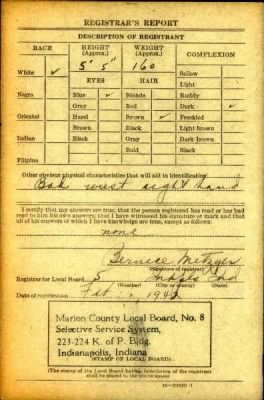 REGISTRAR'S REPORT
DESCRIPTION OF REGISTRANT
RACE HEIGHT (Approx.) WEIGHT (Approx.) COMPLEXION
5' 5" 160
White ✓ Sallow
EYES HAIR Light
Negro Blue ✓ Blonde Ruddy
Gray Red Dark ✓
Oriental Hazel Brown ✓ Freckled
Brown Black Light brown
Indian Black Gray Dark brown
Bald Black
Filipino
Other obvious physical characteristics that will aid in identification
wrist right hand
I certify that my answers are true; that the person registered has read or has had
read to him his own answers; that I have witnessed his signature or mark and that
all of his answers of which I have knowledge are true, except as follows:
none
Bernice Metzger
(Signature of registrar)
Registrar for Local Board
(Number) (City or county) (State)
Date of registration Feb
Marion County Local Board, No. 8
Selective Service System,
223-224 K. of P. Bldg.
Indianapolis, Indiana
(STAMP OF LOCAL BOARD)
(The stamp of the Local Board having jurisdiction of the registrant
shall be placed in the above space)